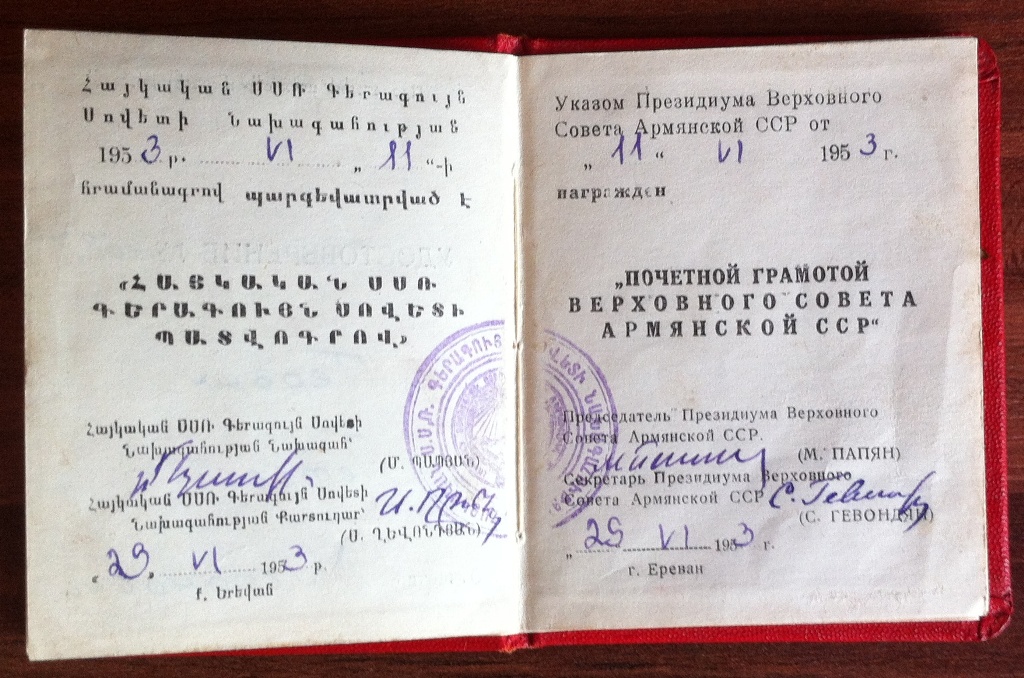 Հայկական ՍՍՌ Գերագույն
Սովետի Նախագահության
1953 թ. VI „11“-ի
հրամանագրով պարգևատրված է
«ՀԱՅԿԱԿԱՆ ՍՍՌ
ԳԵՐԱԳՈՒՅՆ ՍՈՎԵՏԻ
ՊԱՏՎՈԳՐՈՎ»
Հայկական ՍՍՌ Գերագույն Սովետի
Նախագահության Նախագահ՝
(Մ. ՊԱՊՅԱՆ)
Հայկական ՍՍՌ Գերագույն Սովետի
Նախագահության Քարտուղար՝
(Ս. ՂԵՎՈՆԴՅԱՆ)
„29„ VI 1953 թ.
ք. Երեվան
Указом Президиума Верховного
Совета Армянской ССР от
„ 11 “ VI 1953 г.
награжден
„ПОЧЕТНОЙ ГРАМОТОЙ
ВЕРХОВНОГО СОВЕТА
АРМЯНСКОЙ ССР“
Председатель Президиума Верховного
Совета Армянской ССР.
(М. ПАПЯН)
Секретарь Президиума Верховного
Совета Армянской ССР
(С. ГЕВОНДЯН)
„ 29 VI 1953 г.
г. Ереван